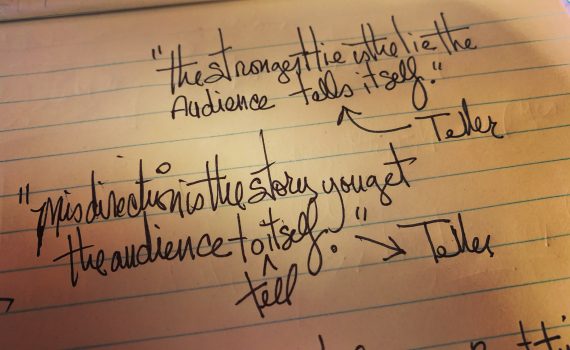 "the strongest lie is the lie the
Audience tells itself."
Teller
"Misdirection is the story you get
the audience to itself."
Teller
tell